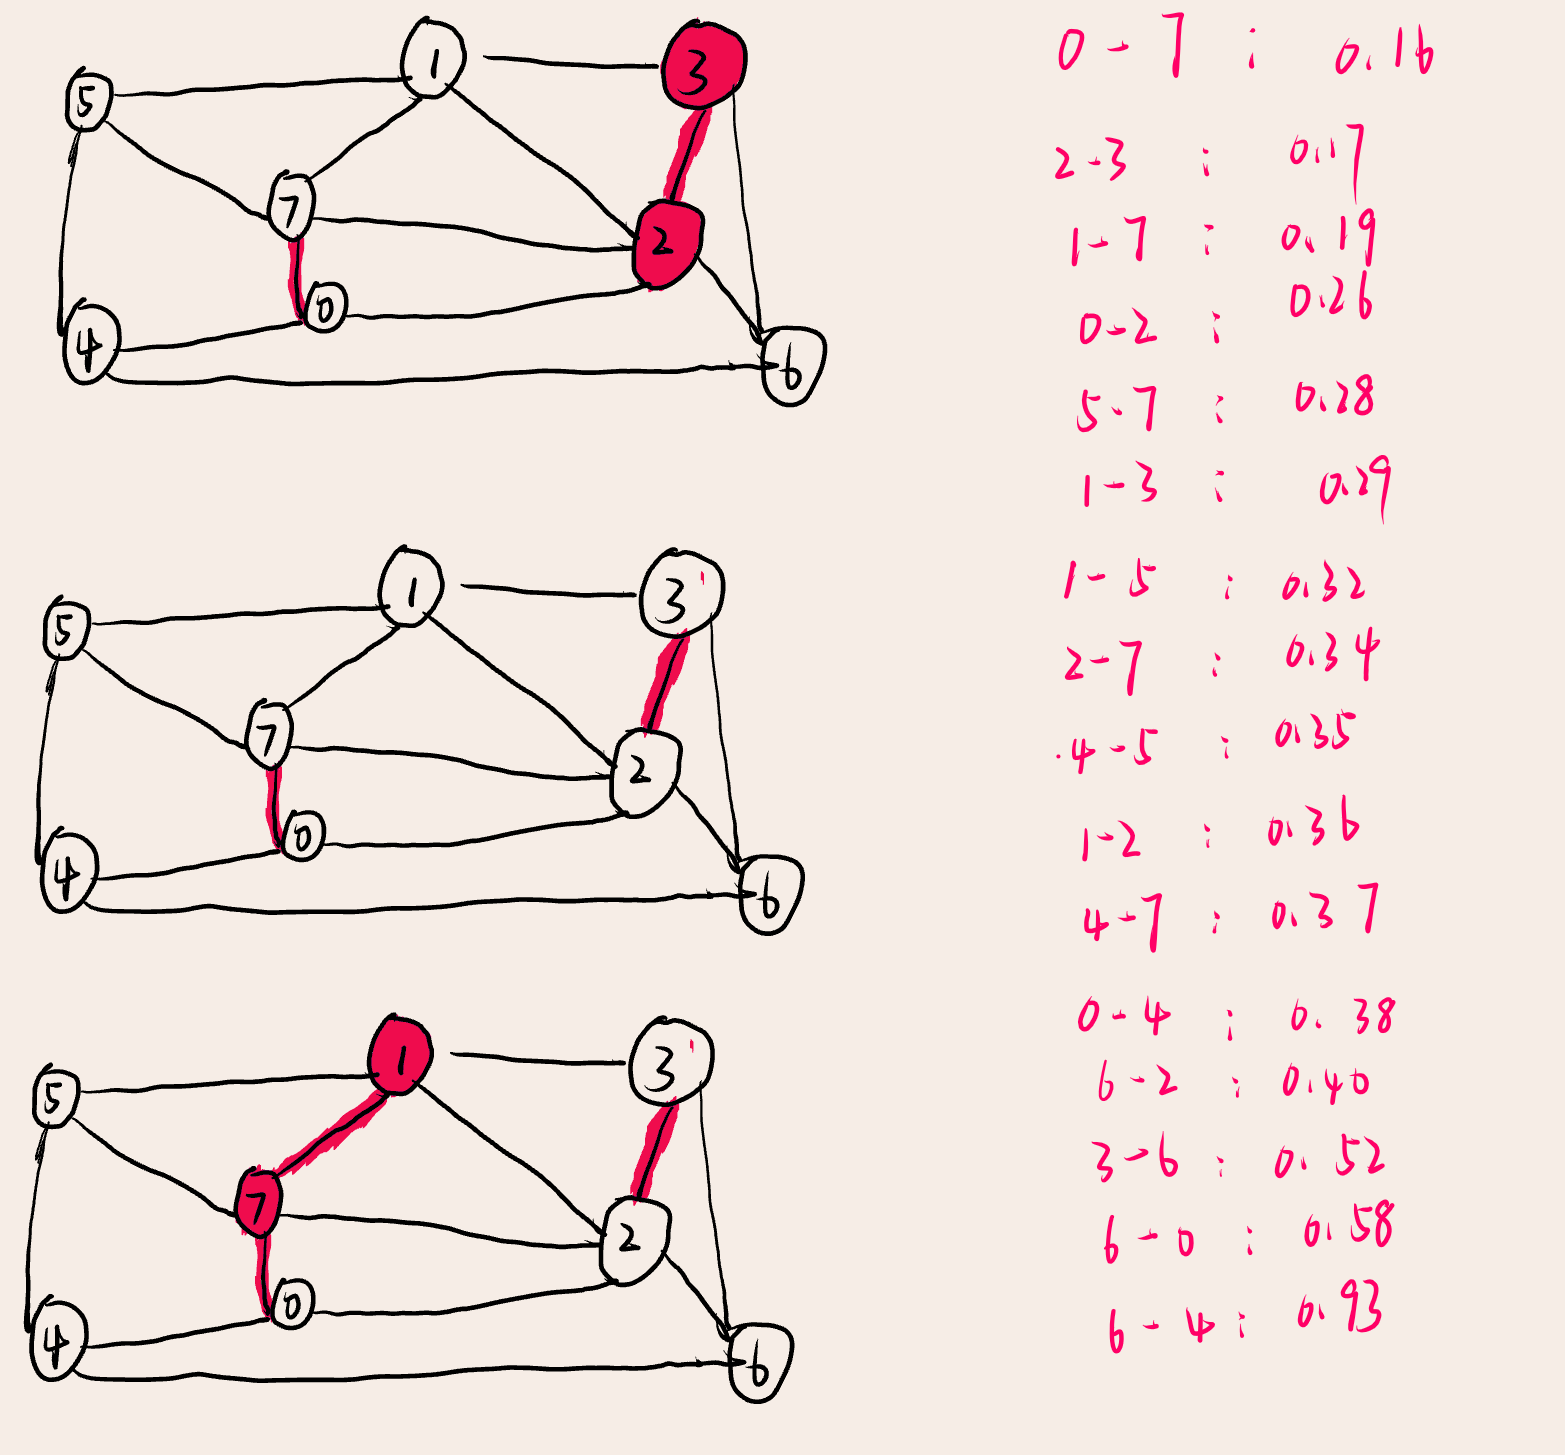 1
3
5
7
2
0
4
6
1
3
5
7
2
0
4
6
1
3
5
7
2
0
4
6
0-7 : 0.16
2-3 : 0.17
1-7 : 0.19
0-2 : 0.26
5-7 : 0.28
1-3 : 0.29
1-5 : 0.32
2-7 : 0.34
4-5 : 0.35
1-2 : 0.36
4-7 : 0.37
0-4 : 0.38
6-2 : 0.40
3-6 : 0.52
6-0 : 0.58
6-4 : 0.93